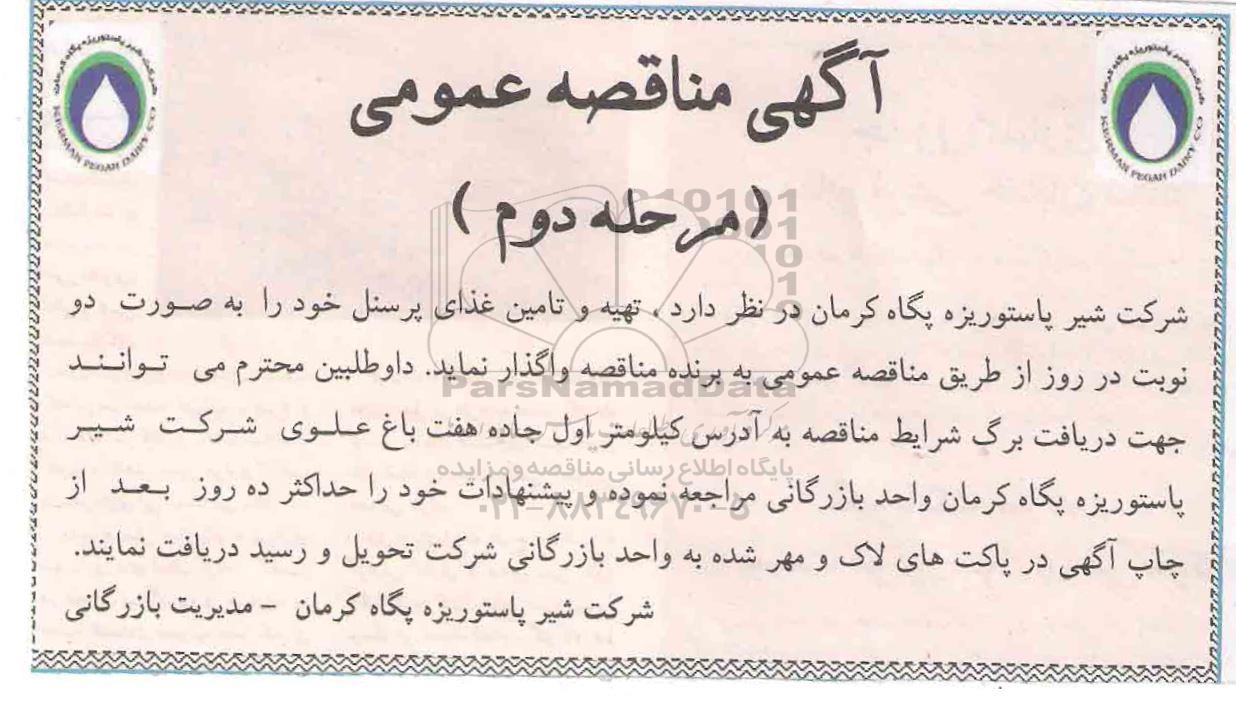 آگهی مناقصه عمومی
(مرحله دوم)
شرکت شیر پاستوریزه پگاه کرمان در نظر دارد ، تهیه و تامین غذای پرسنل خود را به صورت دو
نوبت در روز از طریق مناقصه عمومی به برنده مناقصه واگذار نماید. داوطلبین محترم می توانند
جهت دریافت برگ شرایط مناقصه به آدرس کیلومتر اول جاده هفت باغ علوی شرکت شیر
پاستوریزه پگاه کرمان واحد بازرگانی مراجعه نموده و پیشنهادات خود را حداکثر ده روز بعد از
چاپ آگهی در پاکت های لاک و مهر شده به واحد بازرگانی شرکت تحویل و رسید دریافت نمایند.
شرکت شیر پاستوریزه پگاه کرمان - مدیریت بازرگانی
شرکت شیر پاستوریزه پگاه کرمان
KERMAN PEGAH DAIRY CO
شرکت شیر پاستوریزه پگاه کرمان
KERMAN PEGAH DAIRY CO
ParsNamadData
پایگاه اطلاع رسانی مناقصه و مزایده
۰۲۱-۸۸۳۴۹۶۷۰-۵